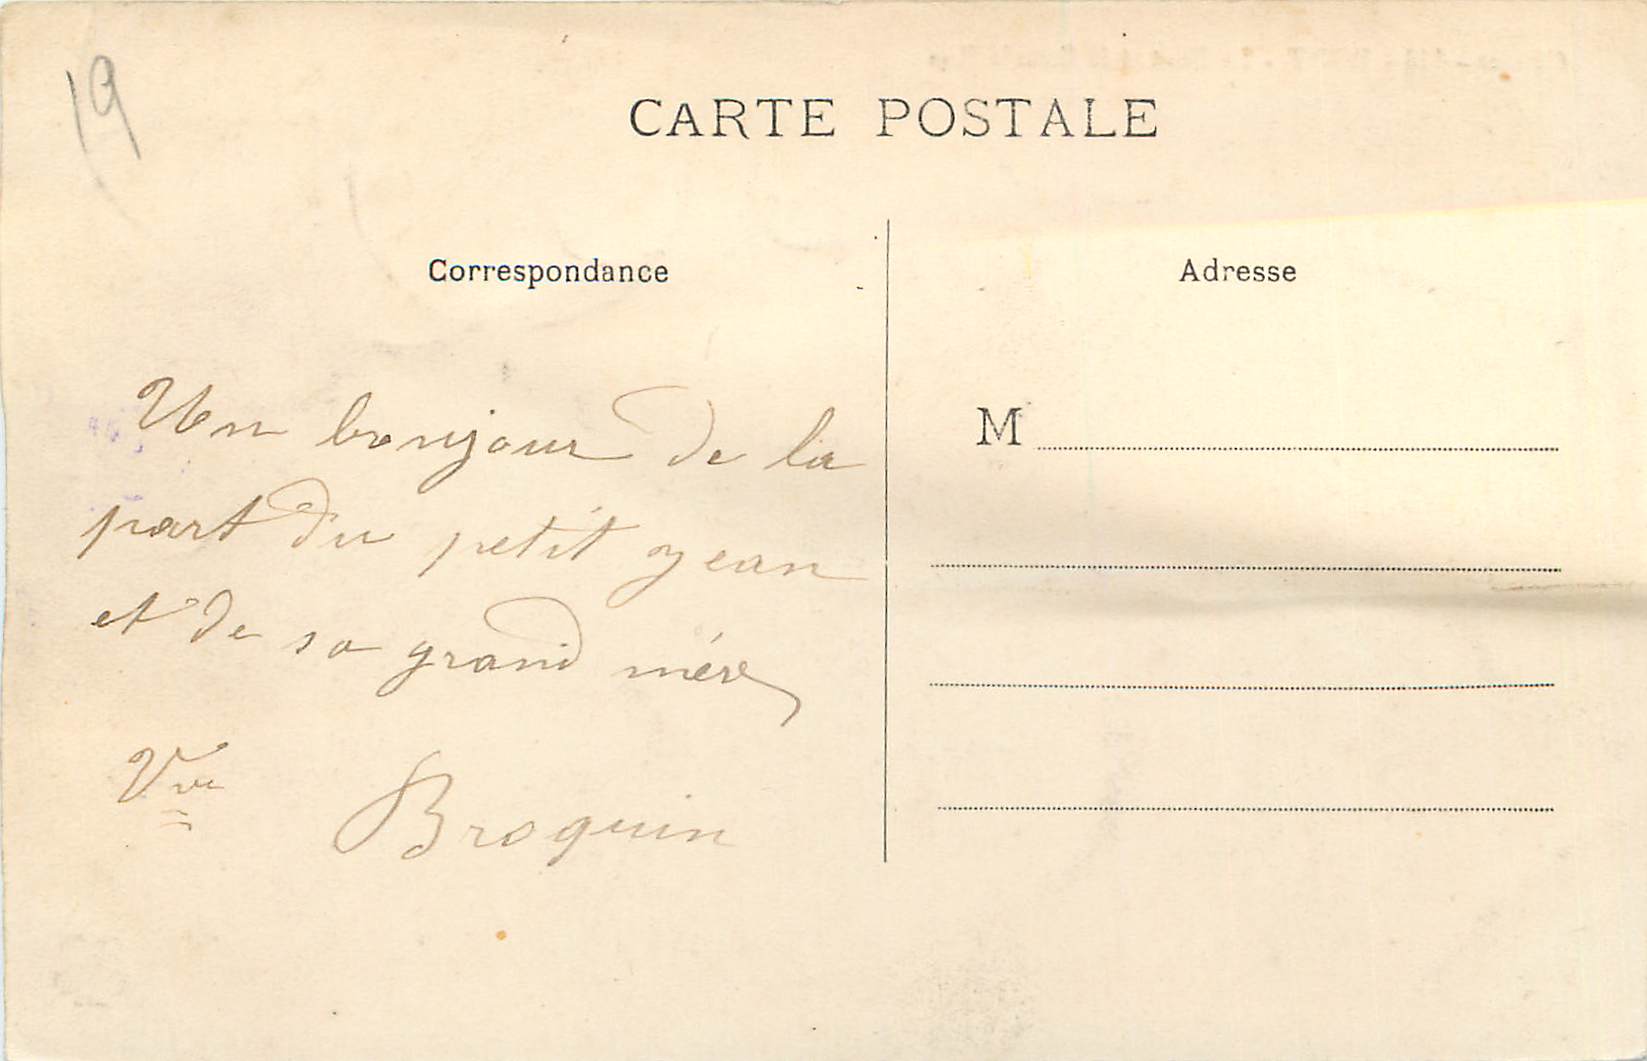 19
CARTE POSTALE
Correspondance
Adresse
Un bonjour de la
part du petit jean
et de sa grand mére
Vve Broquin
M